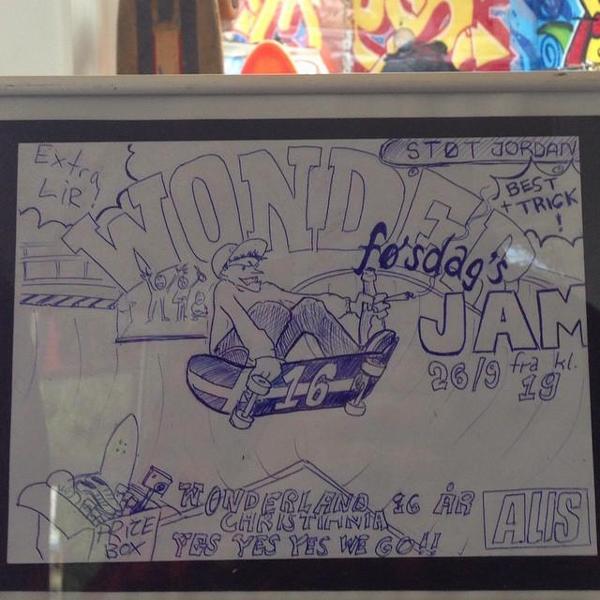 Extra
LIR!
STØT JORDAN
WONDER
BEST
+ TRICK
!
fø'sdag's
JAM
26/9 fra kl.
19
16
PRIZE
BOX
WONDERLAND 16 ÅR
CHRISTIANIA
YES YES YES WE GO!!
ALIS